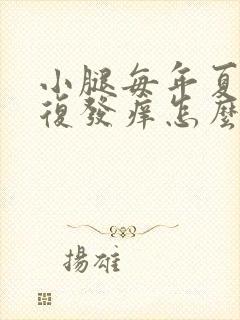 小腿每年夏
復發痒怎麼
揚雄